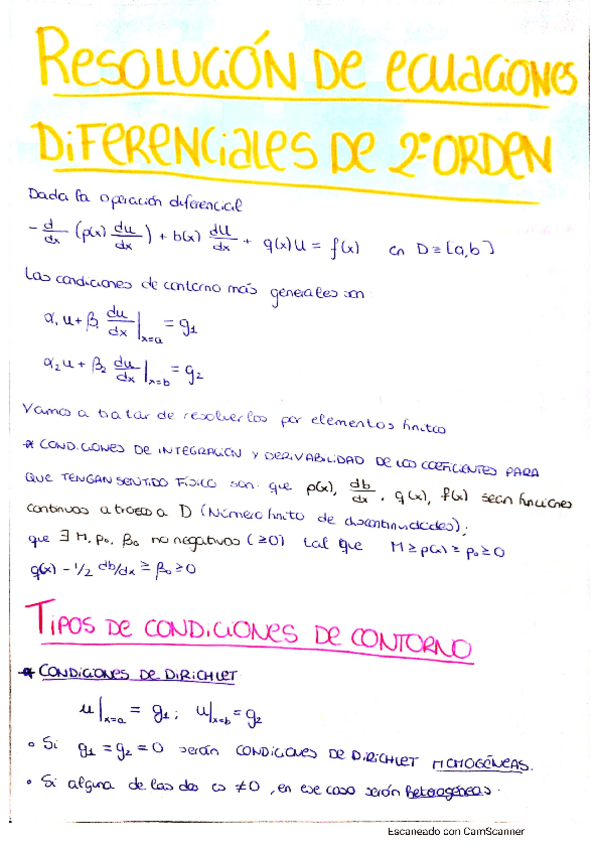 RESOLUCIÓN DE ECUACIONES
DIFERENCIALES DE 2º ORDEN
Dada la operación diferencial
- d/dx (p(x) du/dx) + b(x) du/dx + q(x)u = f(x) en D ≡ [a,b]
Las condiciones de contorno más generales son:
α₁u + β₁ du/dx |x=a = g₁
α₂u + β₂ du/dx |x=b = g₂
Vamos a tratar de resolverlos por elementos finitos
* CONDICIONES DE INTEGRACIÓN Y DERIVABILIDAD DE LOS COEFICIENTES PARA
QUE TENGAN SENTIDO FÍSICO son: que p(x), db/dx, q(x), f(x) sean funciones
continuas a trozos a D (Número finito de discontinuidades);
que ∃ M, p₀, β₀ no negativos (≥0) tal que M ≥ p(x) ≥ p₀ ≥ 0
q(x) - 1/2 db/dx ≥ β₀ ≥ 0
TIPOS DE CONDICIONES DE CONTORNO
* CONDICIONES DE DIRICHLET
u|x=a = g₁; u|x=b = g₂
• Si g₁ = g₂ = 0 serán CONDICIONES DE DIRICHLET HOMOGÉNEAS.
• Si alguna de las dos es ≠0, en ese caso serán Heterogéneas.
Escaneado con CamScanner